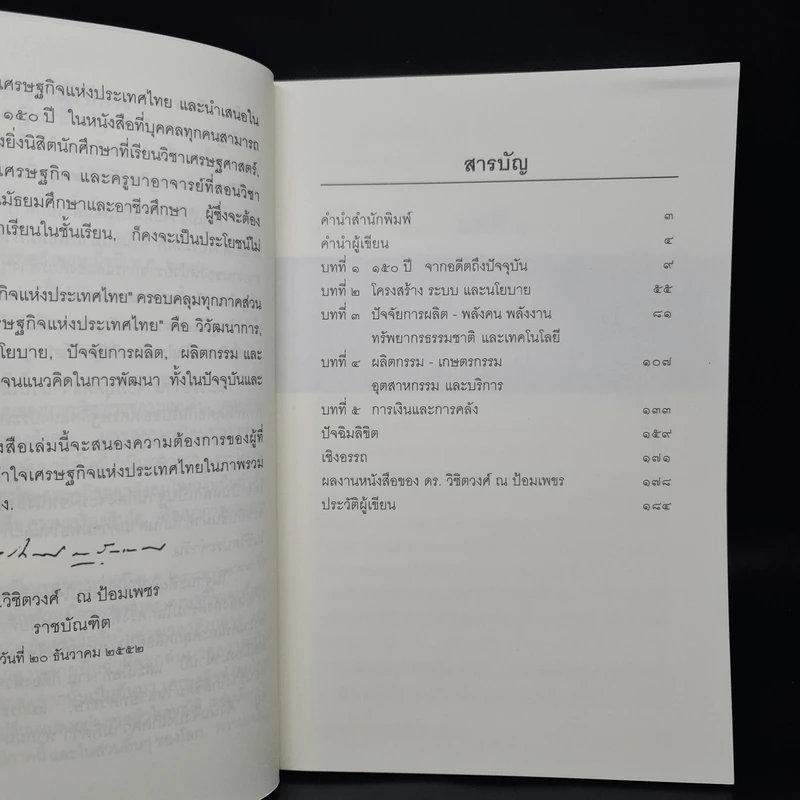 เศรษฐกิจแห่งประเทศไทย และนำเสนอใน
๑๕๐ ปี ในหนังสือที่บุคคลทุกคนสามารถ
ยิ่งนิสิตนักศึกษาที่เรียนวิชาเศรษฐศาสตร์,
เศรษฐกิจ และครูบาอาจารย์ที่สอนวิชา
มัธยมศึกษาและอาชีวศึกษา ผู้ซึ่งจะต้อง
เรียนในชั้นเรียน, ก็คงจะเป็นประโยชน์ไม่
กิจแห่งประเทศไทย" ครอบคลุมทุกภาคส่วน
เศรษฐกิจแห่งประเทศไทย" คือ วิวัฒนาการ,
โยบาย, ปัจจัยการผลิต, ผลิตกรรม และ
จนแนวคิดในการพัฒนา ทั้งในปัจจุบันและ
สือเล่มนี้จะสนองความต้องการของผู้ที่
ใจเศรษฐกิจแห่งประเทศไทยในภาพรวม
ง.
วิชิตวงศ์ ณ ป้อมเพชร
ราชบัณฑิต
วันที่ ๒๐ ธันวาคม ๒๕๕๒
สารบัญ
คำนำสำนักพิมพ์ ๓
คำนำผู้เขียน ๔
บทที่ ๑ ๑๕๐ ปี จากอดีตถึงปัจจุบัน ๙
บทที่ ๒ โครงสร้าง ระบบ และนโยบาย ๕๕
บทที่ ๓ ปัจจัยการผลิต - พลังคน พลังงาน ๘๑
ทรัพยากรธรรมชาติ และเทคโนโลยี
บทที่ ๔ ผลิตกรรม - เกษตรกรรม ๑๐๗
อุตสาหกรรม และบริการ
บทที่ ๕ การเงินและการคลัง ๑๓๓
ปัจฉิมลิขิต ๑๕๙
เชิงอรรถ ๑๗๑
ผลงานหนังสือของ ดร. วิชิตวงศ์ ณ ป้อมเพชร ๑๗๘
ประวัติผู้เขียน ๑๘๔